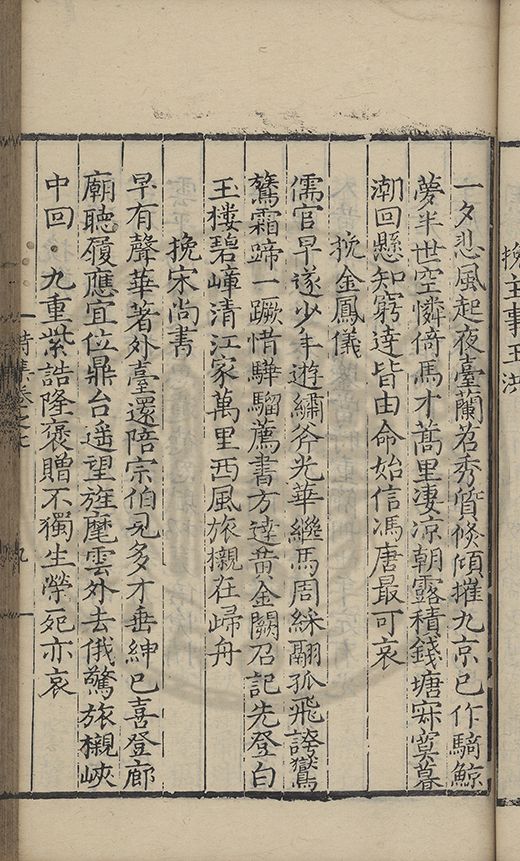 挽主事王洪
一夕悲風起夜臺蘭苕秀質倏傾摧九京已作騎鯨
夢半世空憐倚馬才蒿里凄凉朝露積錢塘寂寞暮
潮回懸知窮達皆由命始信馮唐最可哀
挽金鳳儀
儒官早遂少年遊繡斧光華繼馬周綵翮孤飛誇鸑
鷟霜蹄一蹶惜驊騮薦書方達黄金闕召記先登白
玉樓碧嶂清江家萬里西風旅櫬在歸舟
挽宋尚書
早有聲華著外臺還陪宗伯見多才垂紳已喜登廊
廟聽履應宜位鼎台遥望旌麾雲外去俄驚旅櫬峽
中回九重紫誥隆褒贈不獨生榮死亦哀
詩集卷之七 九